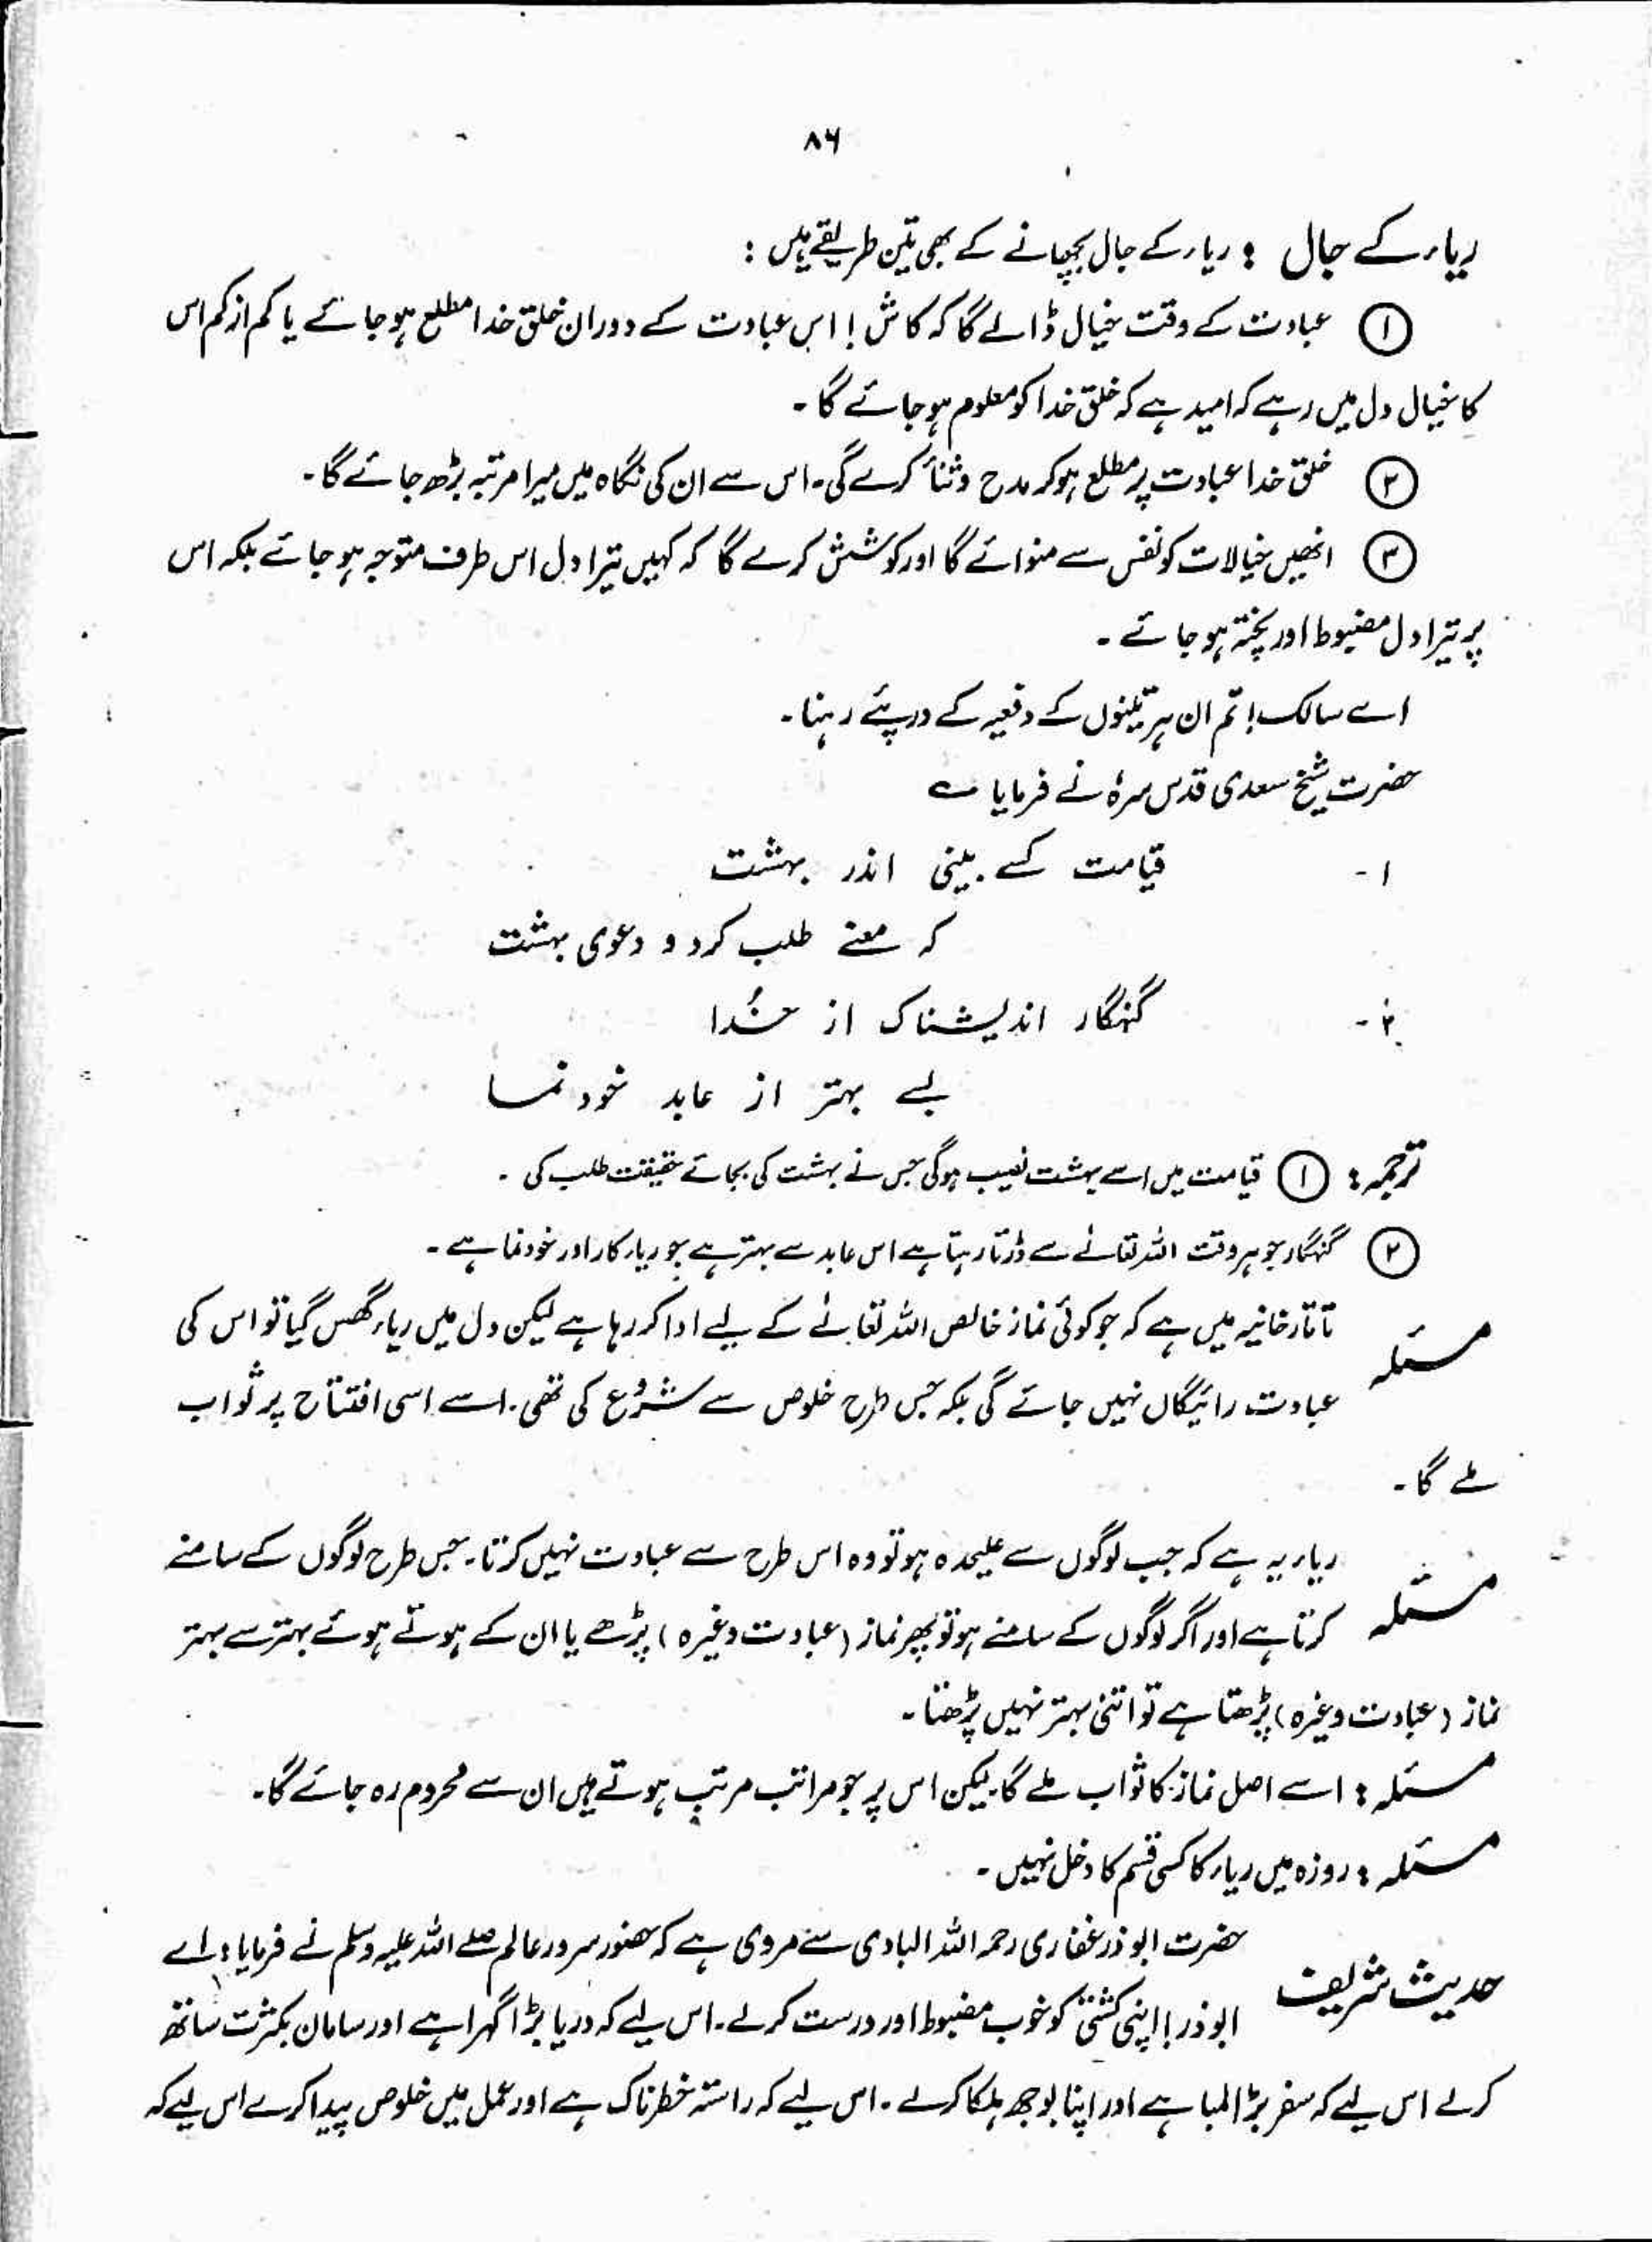 ۸۶
ریاء کے جال : ریاء کے جال بچھانے کے بھی تین طریقے ہیں :
① عبادت کے وقت خیال ڈالے گا کہ کاش ! اس عبادت کے دوران خلق خدا مطلع ہو جائے یا کم از کم اس
کا خیال دل میں رہے کہ امید ہے کہ خلق خدا کو معلوم ہو جائے گا ۔
② خلق خدا عبادت پر مطلع ہو کر مدح و ثناء کرے گی ۔ اس سے ان کی نگاہ میں میرا مرتبہ بڑھ جائے گا ۔
③ انھیں خیالات کو نفس سے منوائے گا اور کوشش کرے گا کہ کہیں تیرا دل اس طرف متوجہ ہو جائے بلکہ اس
پر تیرا دل مضبوط اور پختہ ہو جائے ۔
اے سالک ! تم ان ہر تینوں کے دفعیہ کے درپئے رہنا ۔
حضرت شیخ سعدی قدس سرہٗ نے فرمایا ؎
۱ - قیامت کسے بینی اندر بہشت
کہ معنے طلب کرد و دعوی بہشت
۲ - گنہگار اندیشناک از خُدا
بسے بہتر از عابد خود نما
ترجمہ : ① قیامت میں اسے بہشت نصیب ہوگی جس نے بہشت کی بجائے حقیقت طلب کی ۔
② گنہگار جو ہر وقت اللہ تعالےٰ سے ڈرتا رہتا ہے اس عابد سے بہتر ہے جو ریاء کار اور خود نما ہے ۔
مسئلہ تاتارخانیہ میں ہے کہ جو کوئی نماز خالص اللہ تعالےٰ کے لیے ادا کر رہا ہے لیکن دل میں ریاء گھس گیا تو اس کی
عبادت رائیگاں نہیں جائے گی بلکہ جس طرح خلوص سے شروع کی تھی ۔ اسے اسی افتتاح پر ثواب
ملے گا ۔
مسئلہ ریاء یہ ہے کہ جب لوگوں سے علیحدہ ہو تو وہ اس طرح سے عبادت نہیں کرتا ۔ جس طرح لوگوں کے سامنے
کرتا ہے اور اگر لوگوں کے سامنے ہو تو پھر نماز (عبادت وغیرہ) پڑھے یا ان کے ہوتے ہوئے بہتر سے بہتر
نماز (عبادت وغیرہ) پڑھتا ہے تو اتنی بہتر نہیں پڑھتا ۔
مسئلہ : اسے اصل نماز کا ثواب ملے گا لیکن اس پر جو مراتب مرتب ہوتے ہیں ان سے محروم رہ جائے گا ۔
مسئلہ : روزہ میں ریاء کا کسی قسم کا دخل نہیں ۔
حدیث شریف حضرت ابوذر غفاری رحمہ اللہ الباری سے مروی ہے کہ حضور سرور عالم صلے اللہ علیہ وسلم نے فرمایا : اے
ابوذر ! اپنی کشتی کو خوب مضبوط اور درست کر لے ۔ اس لیے کہ دریا بڑا گہرا ہے اور سامان بکثرت ساتھ
کر لے اس لیے کہ سفر بڑا لمبا ہے اور اپنا بوجھ ہلکا کر لے ۔ اس لیے کہ راستہ خطرناک ہے اور عمل میں خلوص پیدا کرے اس لیے کہ